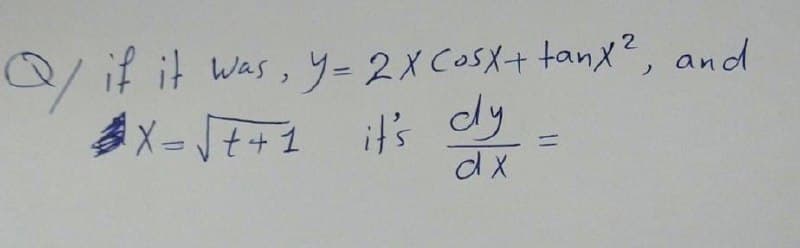 Q/ if it was, y= 2X cosX+ tanX², and
X=√t+1 it's dy/dX =